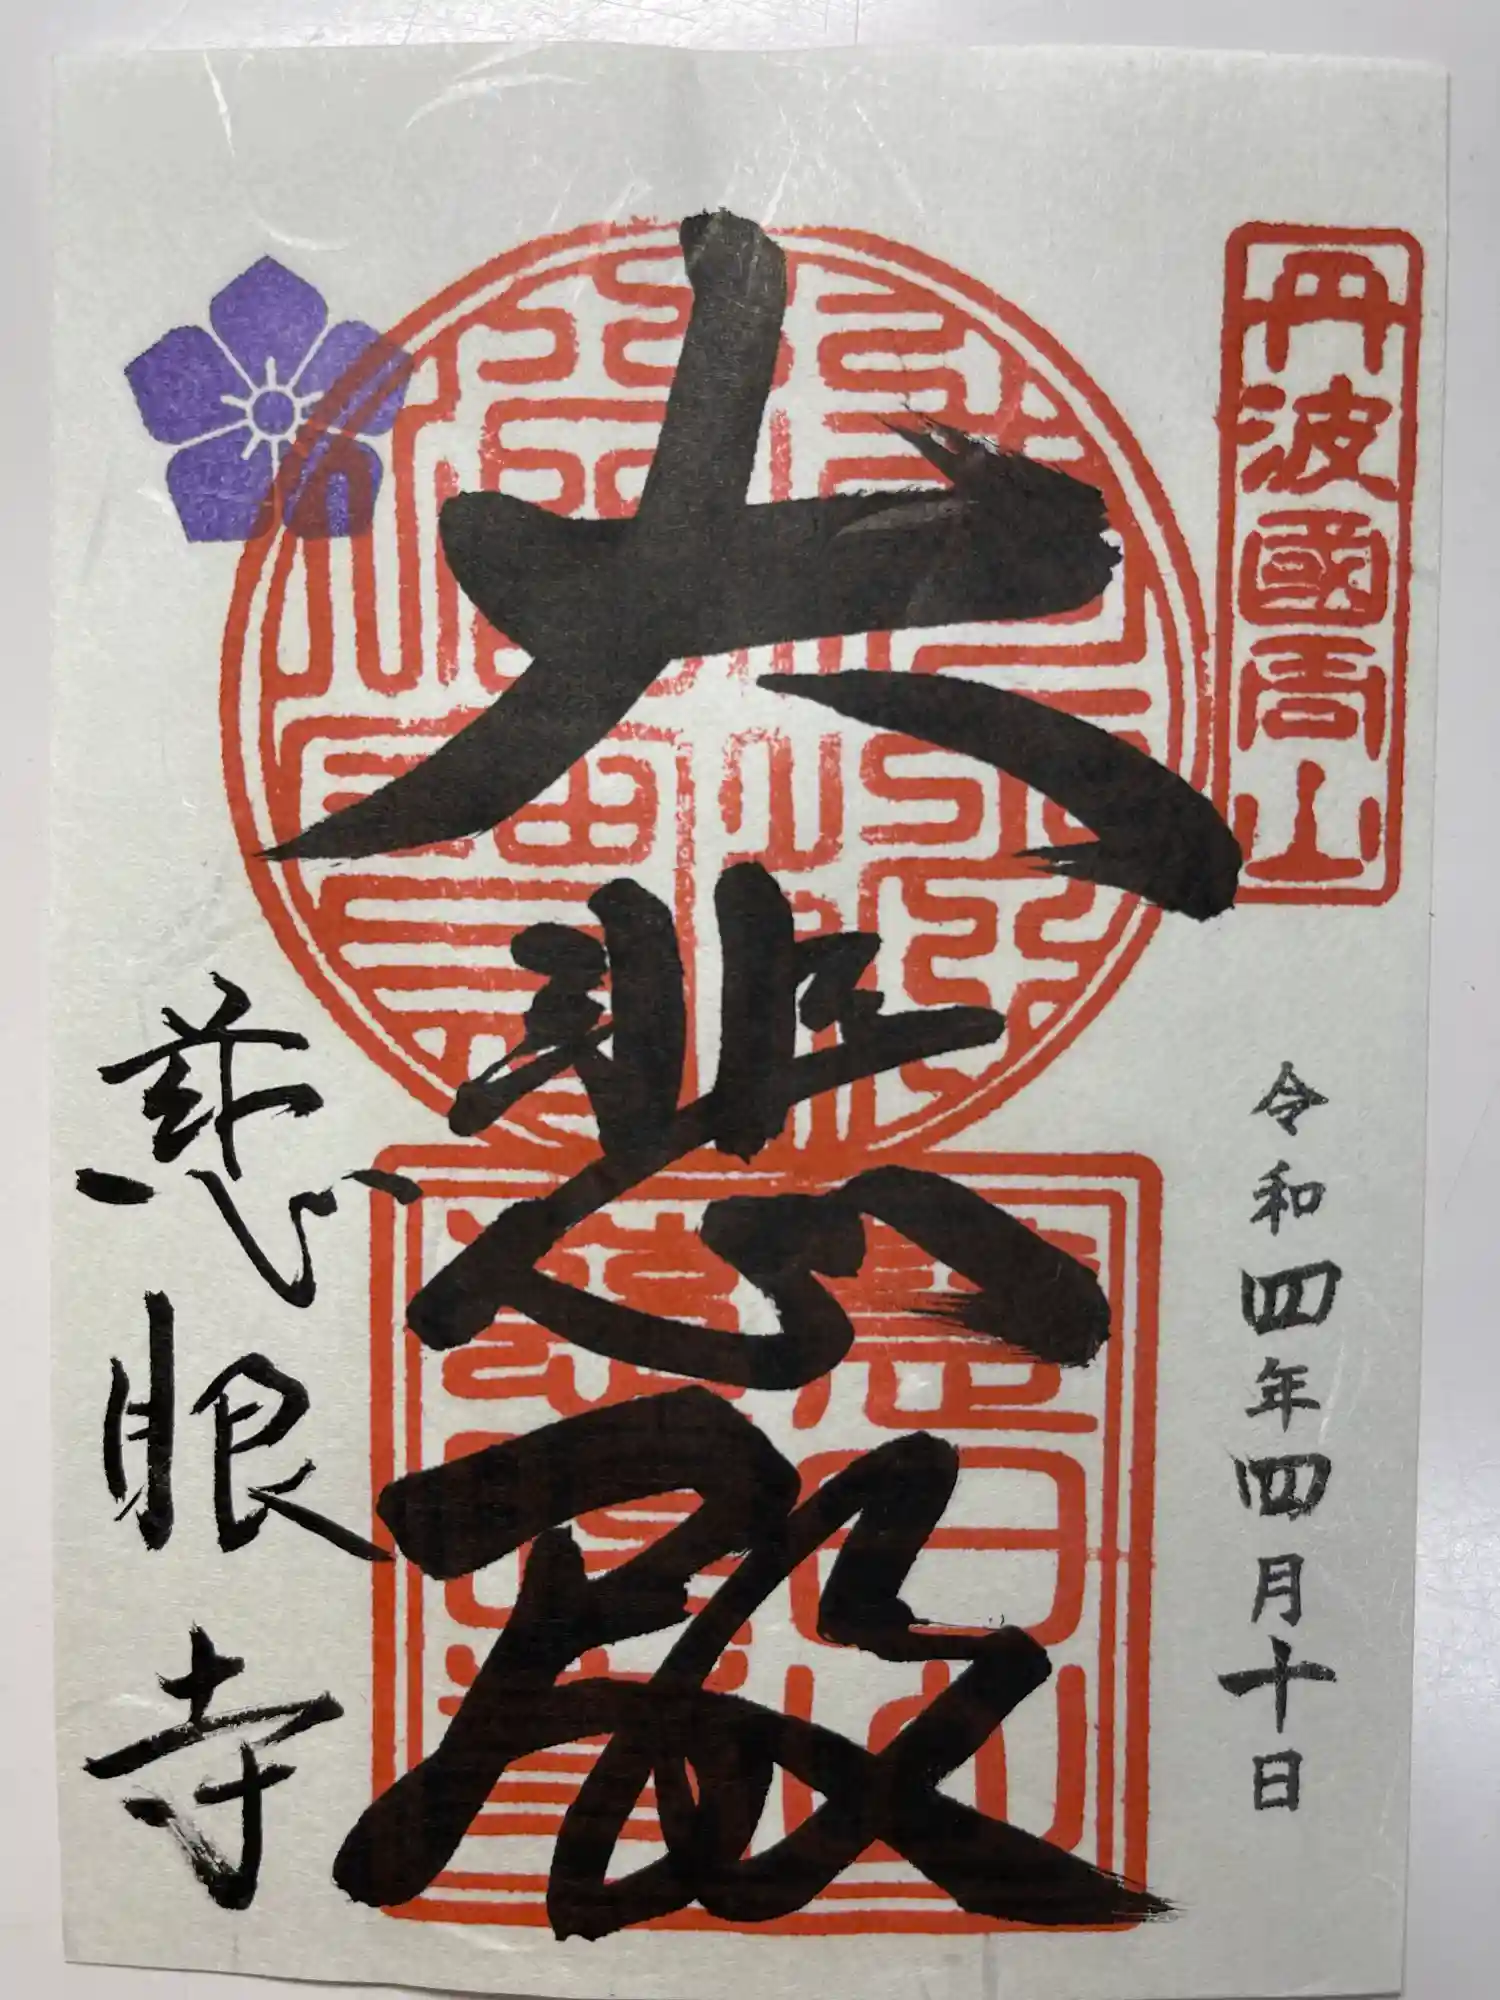 丹波國吾山
令和四年四月十日
大悲殿
慈眼寺